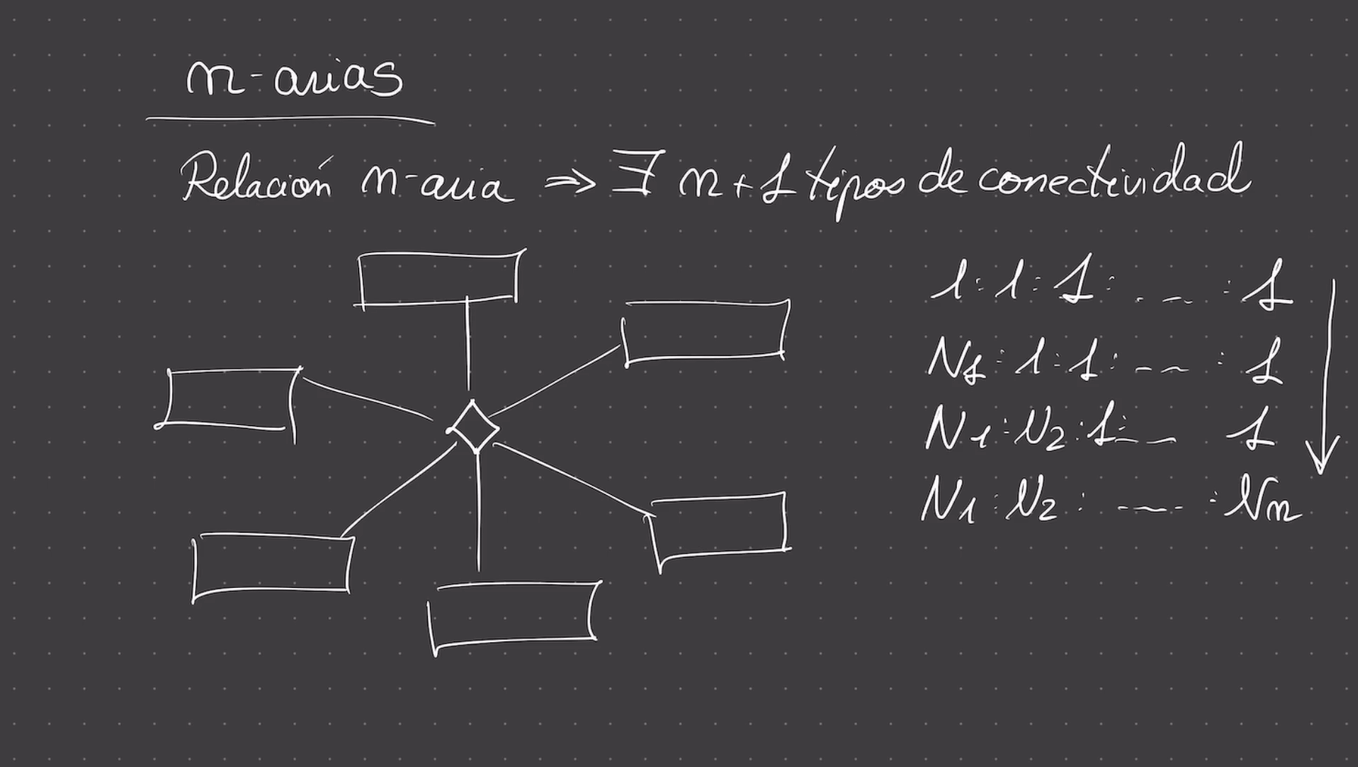 n-arias
Relación n-aria => ∃ n+1 tipos de conectividad
1:1:1: ... :1
N1:1:1: ... :1
N1:N2:1: ... 1
N1:N2: ... :Nn